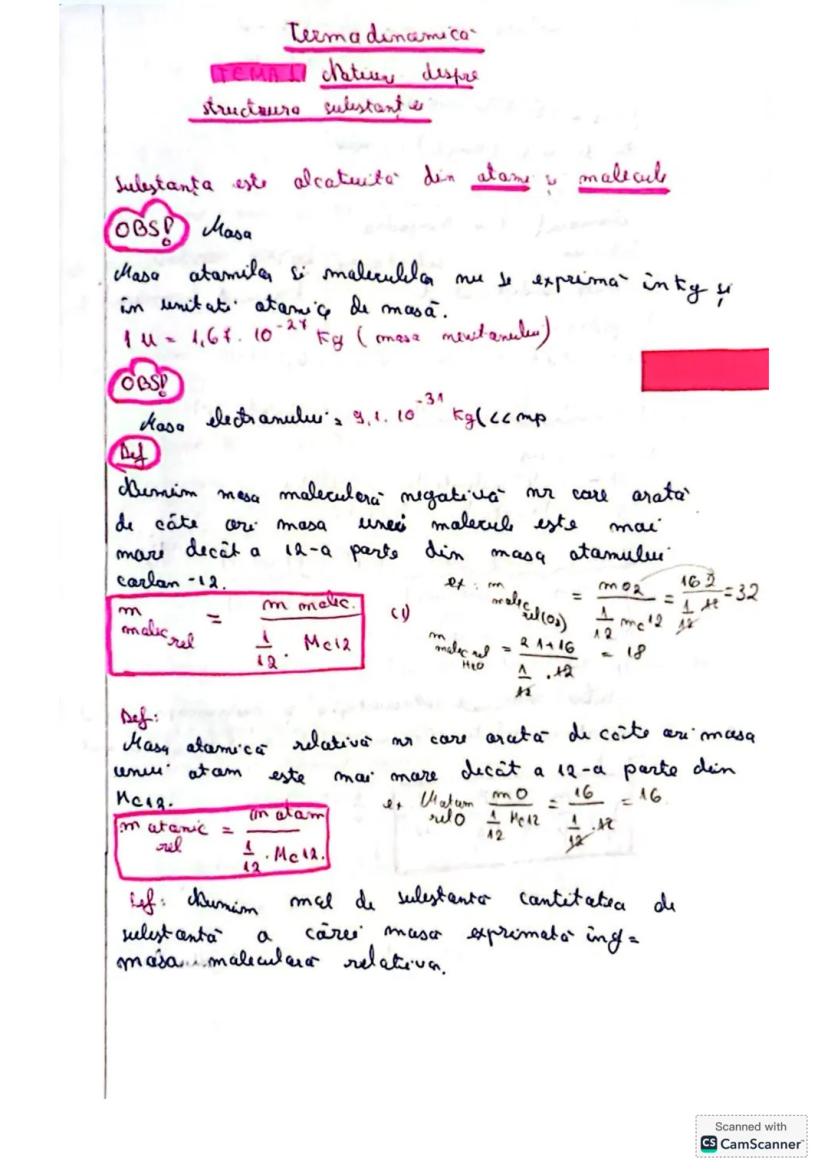 Termodinamica
TEMA 1 Notiuni despre
structura substantei
Substanța este alcatuită din atomi și molecule
OBS! Masa
Masa atomilor si moleculelor nu se exprimă în kg și
in unitati atomice de masă.
1 u = 1,67 · 10⁻²⁷ kg (masa neutronului)
OBS!
Masa electronului = 9,1 · 10⁻³¹ kg (<< mp
Def
Numim masa moleculară negativă nr care arată
de câte ori masa unei molecule este mai
mare decât a 12-a parte din masa atomului
carbon -12.
m molec rel = m molec. / (1/12 · Mc12) (1)
ex: m molec rel(O2) = mO2 / (1/12 mc12) = 16 2 / (1/12 · 12) = 32
m molec rel H2O = 2 1+16 / (1/12 · 12) = 18
Def:
Masa atomică relativă nr care arată de câte ori masa
unui atom este mai mare decât a 12-a parte din
Mc12.
m atomic rel = m atom / (1/12 · Mc12.)
ex Matom rel O mO / (1/12 Mc12) = 16 / (1/12 · 12) = 16
Def: Numim mol de substanta cantitatea de
substantă a cărei masa exprimată în g =
masa moleculara relativa.
Scanned with
CS CamScanner